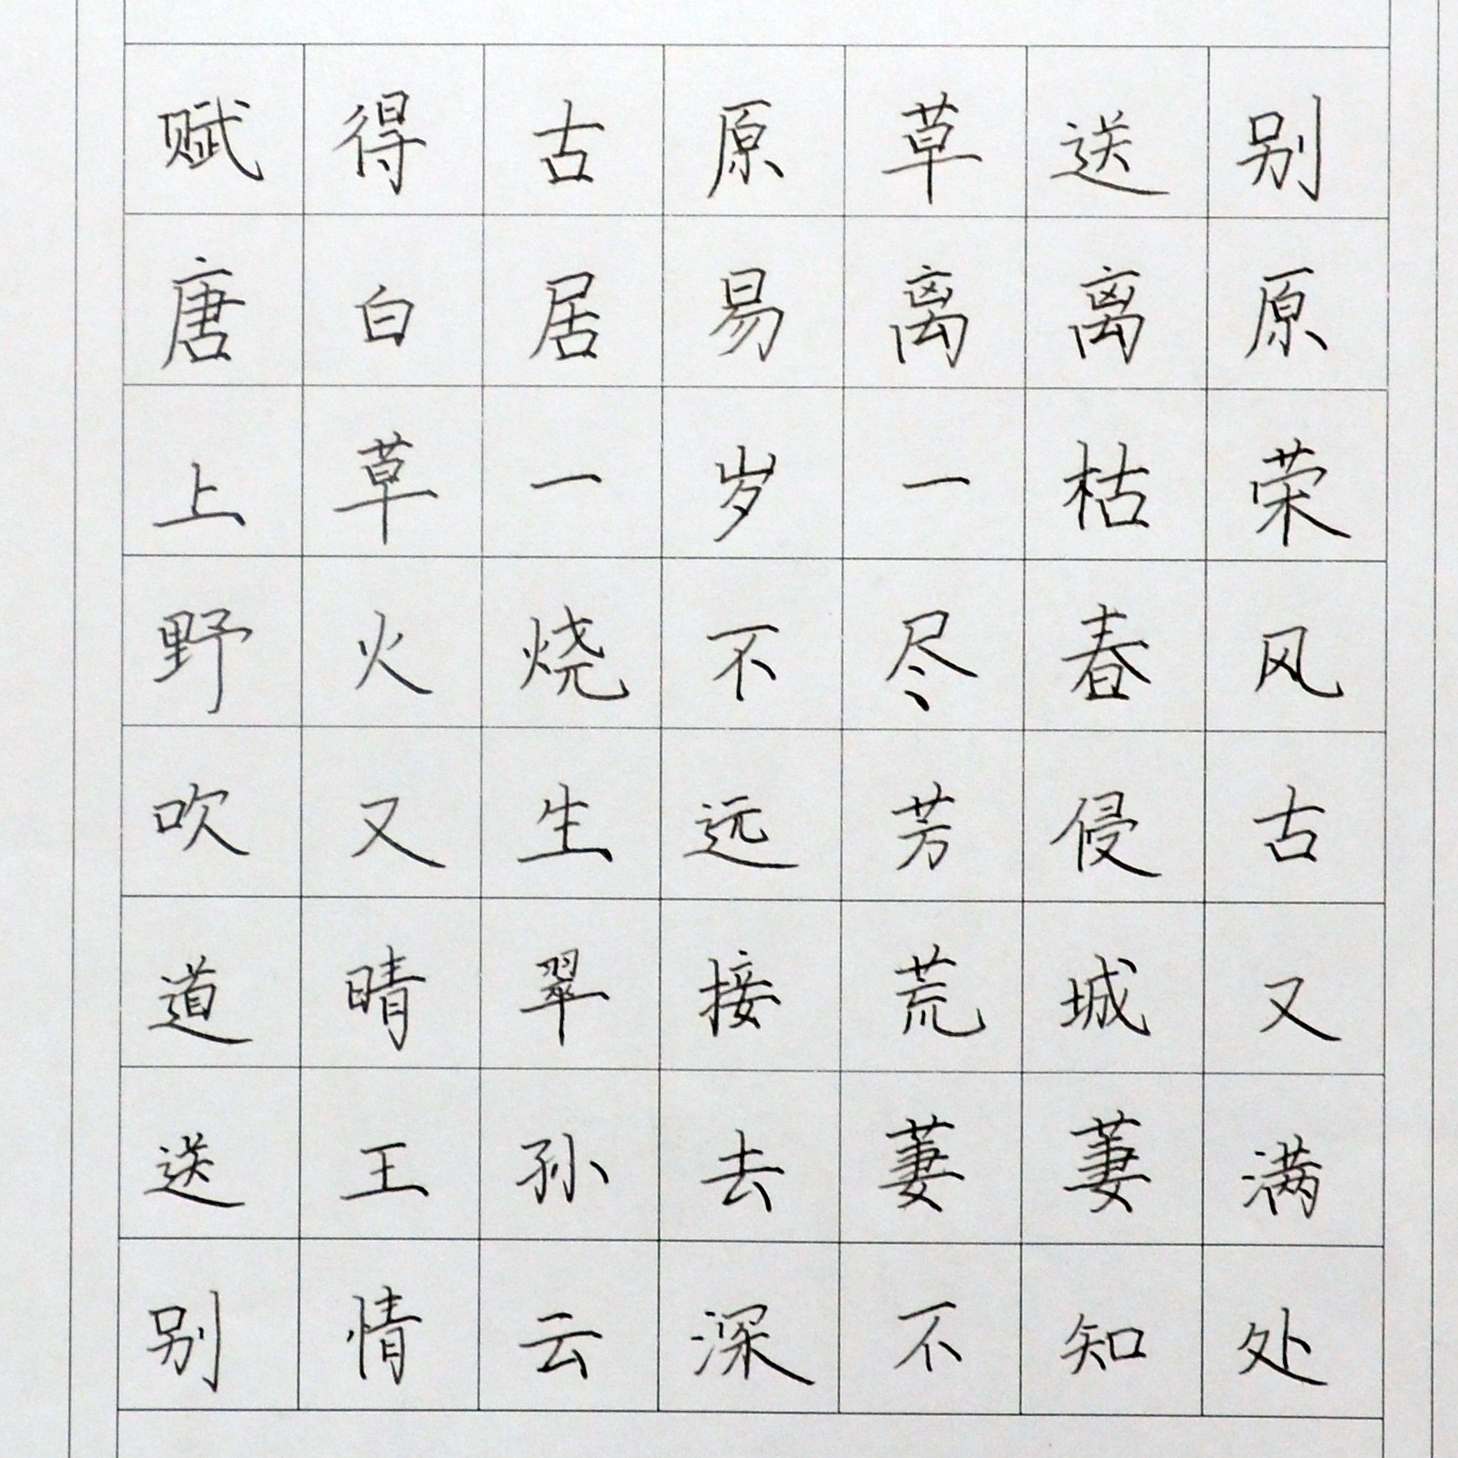 赋得古原草送别
唐白居易离离原
上草一岁一枯荣
野火烧不尽春风
吹又生远芳侵古
道晴翠接荒城又
送王孙去萋萋满
别情云深不知处